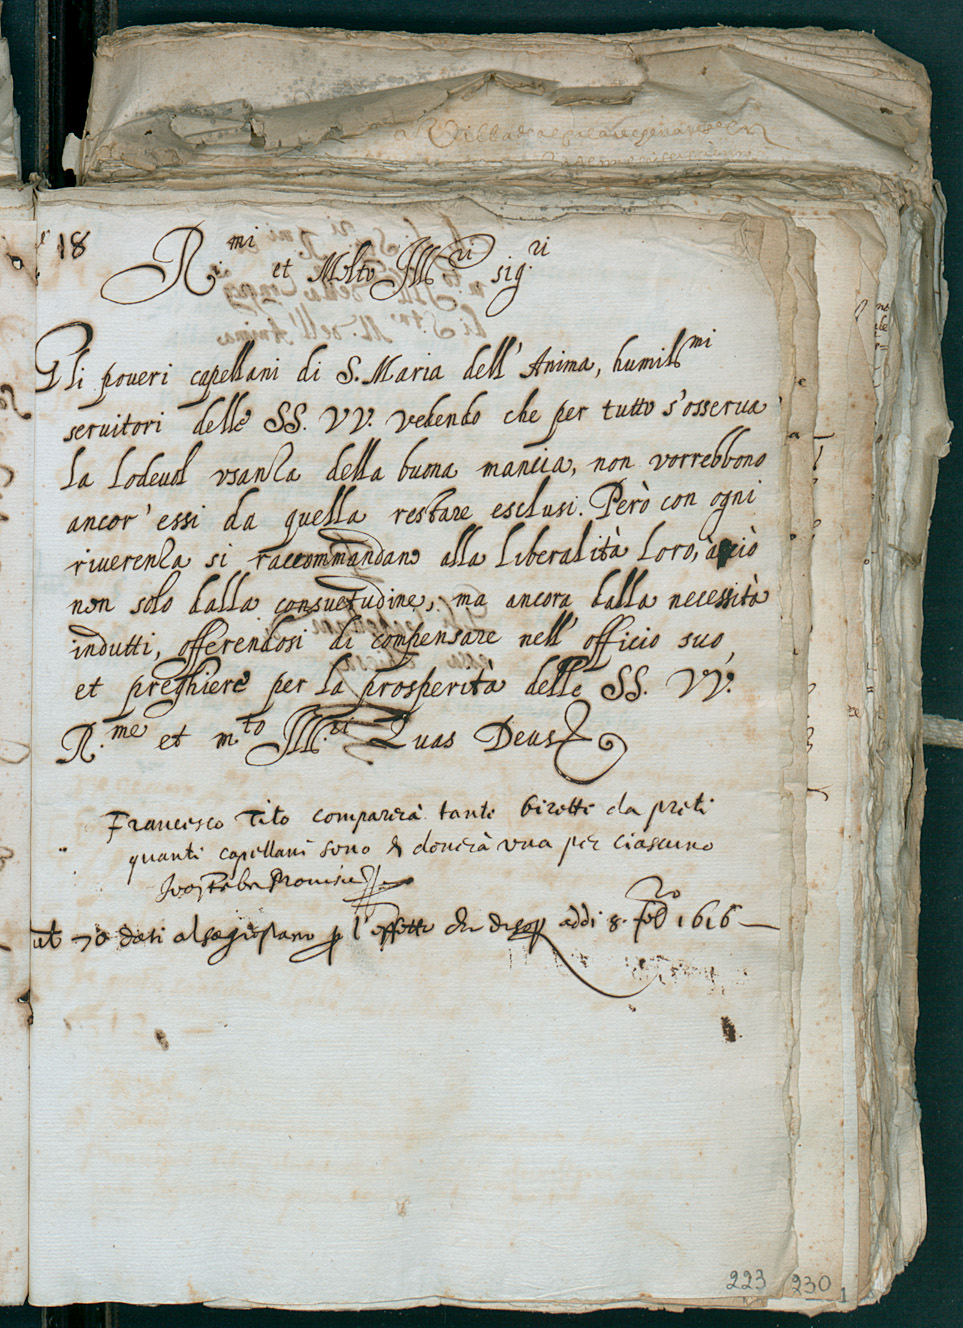 18
R.mi et Molto Ill.ri Sig.ri
Gli poueri capellani di S. Maria dell' Anima, humill.mi
seruitori delle SS. VV. vedendo che per tutto s'osserua
la lodeuol vsanza della buona mancia, non vorrebbono
ancor' essi da quella restare esclusi. Però con ogni
riuerenza si raccommandano alla liberalità loro, acciò
non solo dalla consuetudine, ma ancora dalla necessità
indutti, offerendosi di compensare nell' officio suo,
et preghiere per la prosperita delle SS. VV.
R.me et m.to Ill.ri Quas Deus &
Francesco Tito comparerà tante birette da preti
quanti capellani sono & donerà vna per ciascuno
dati al sagrestano p l'effetto di sop.a addi 8. feb.ro 1616
223
230
1